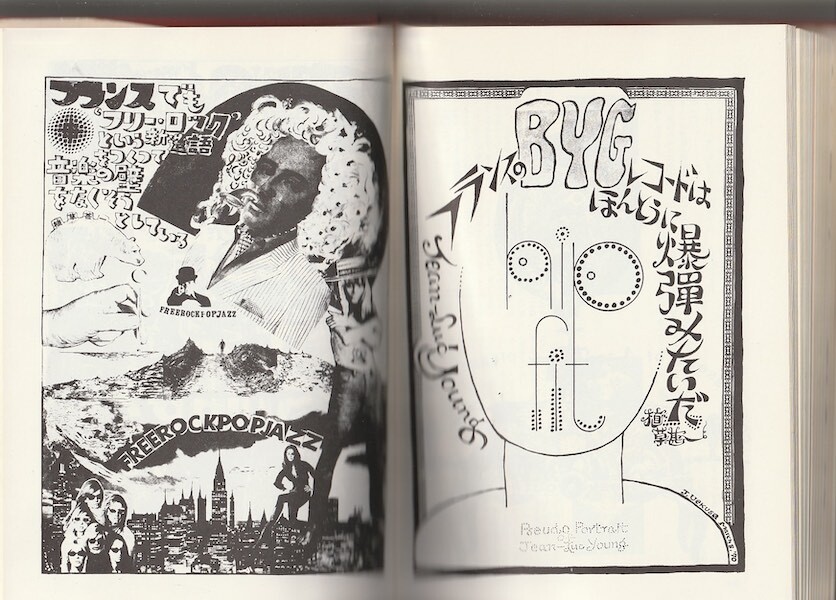 フランスでも
“フリー・ロック”
という新造語
をつくって
音楽の壁
をなくそう
としている
FREEROCKPOPJAZZ
FREEROCKPOPJAZZ
フランスのBYGレコードは
ほんとうに
爆彈みたいだ
植草甚一
Jean-Luc Young
Pseudo Portrait
of
Jean-Luc Young
J. Uekusa March '70